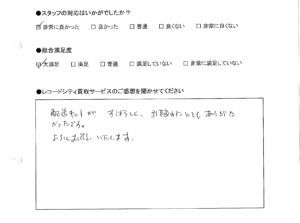 ●スタッフの対応はいかがでしたか?
☑非常に良かった □良かった □普通 □良くない □非常に良くない
●総合満足度
☑大満足 □満足 □普通 □満足していない □非常に満足していない
●レコードシティ買取サービスのご感想を聞かせてください
配送キットが、すばらしく、出張前にとてもありがた
かったです。
よろしくお願いいたします。